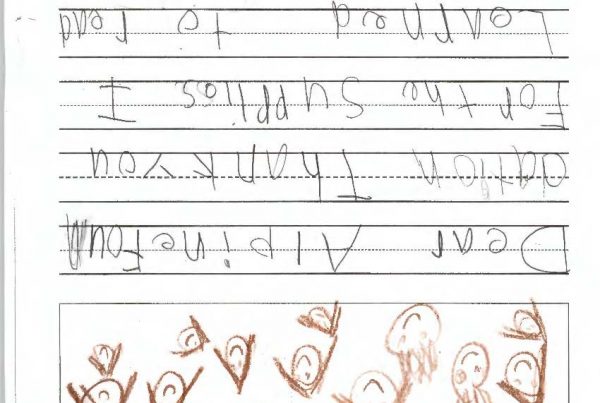 Dear AlpineFoun
dation Thankyou
For the Supplies I
Learned to read